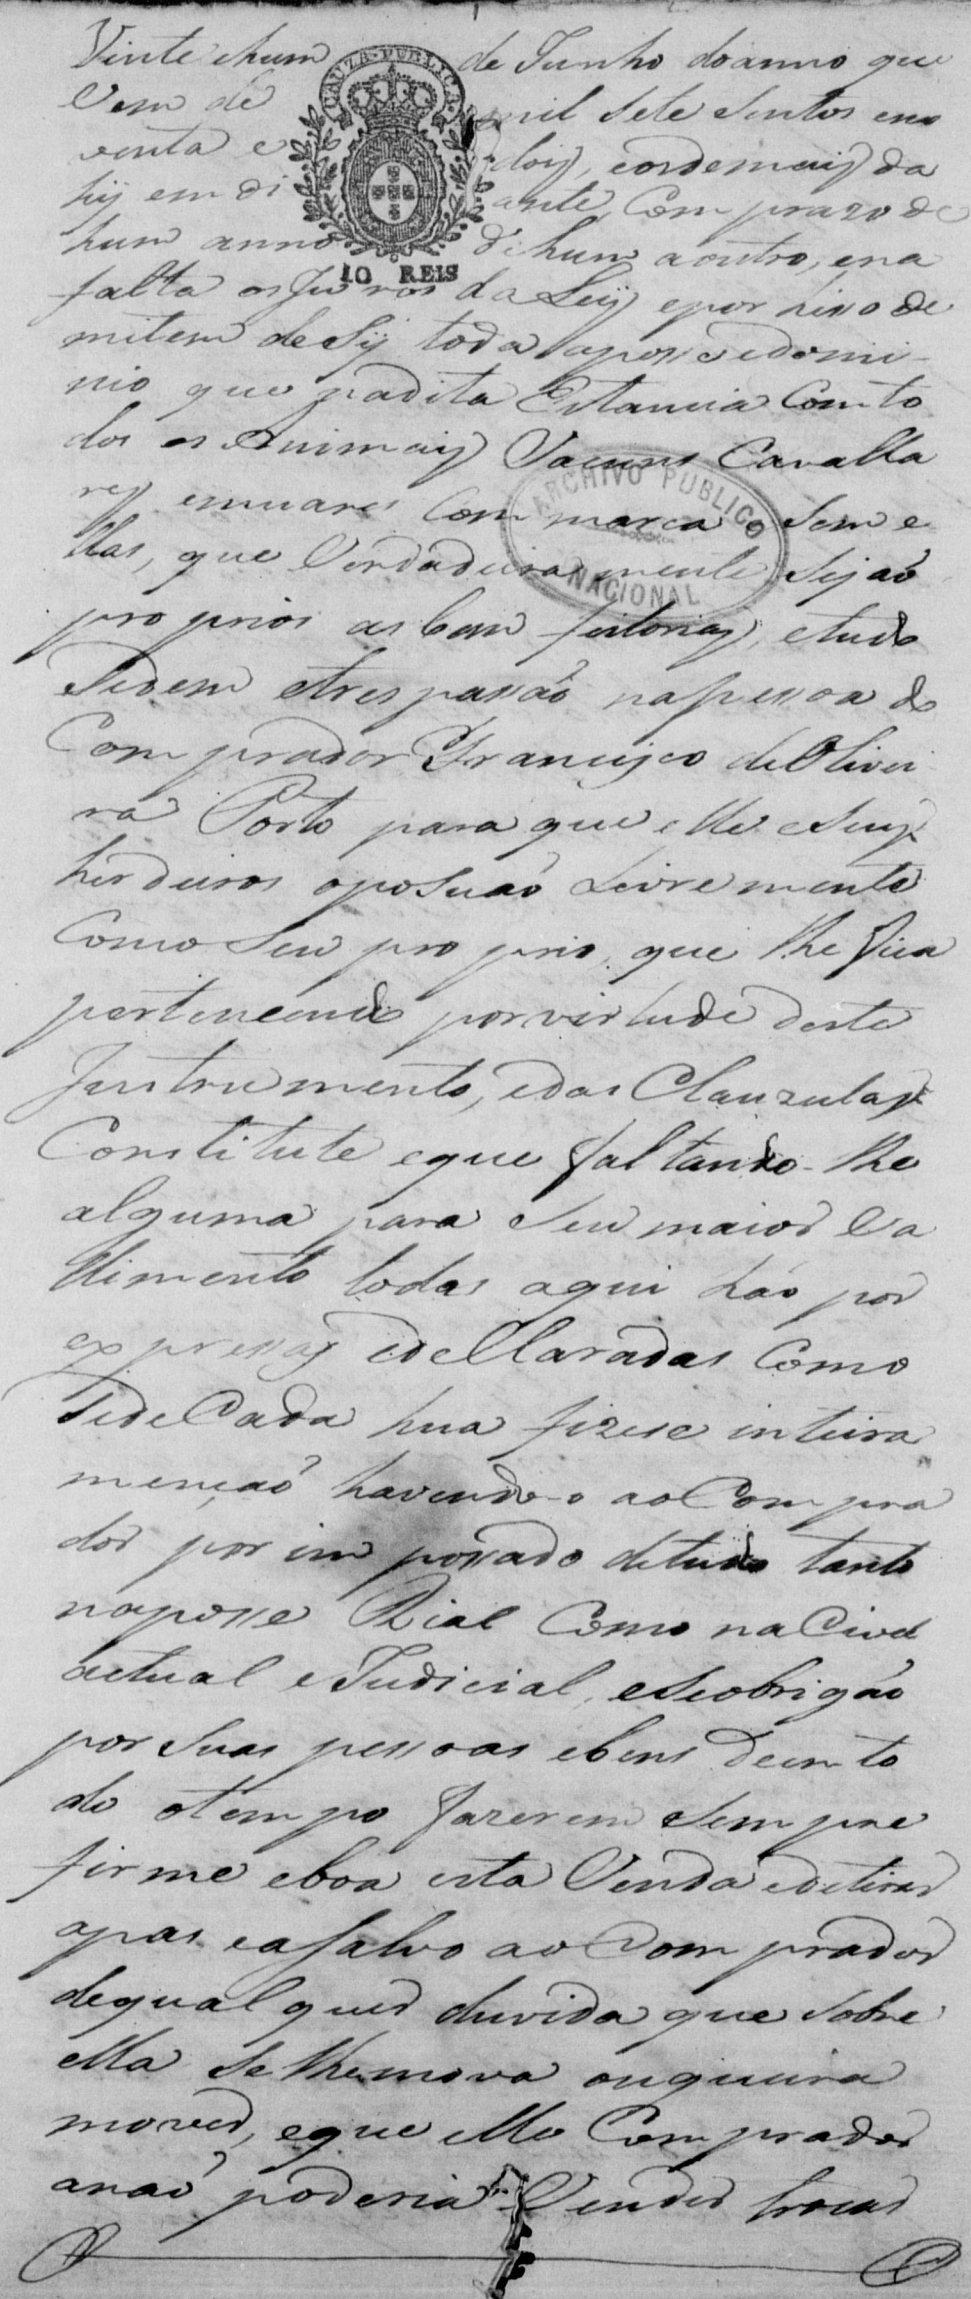 Vinte ehum de Junho doanno que
vem de mil sete sentos eno
venta e dois, eosdemais da
hy em di ante, Com prazo de
hum anno dehum aoutro, ena
falta os Juros da Ley epor isso de
mitem de Sy toda aposse edomi-
nio que nadita Estancia Comto
dos os Animais Vacuns Cavalla
res emuares Com marca o Sem e
llas, que Verdadeira mente Sejaõ
proprios as bem feitorias, etudo
Sedem etres passaõ napessoa do
Com prador Francisco de Olivei
ra Porto para que elle eSeus
herdeiros oposuaõ Livre mente
Como Seu pro prio, que lhe fica
pertencendo porvertude deste
Instrumento, edas Clauzulas
Constitute eque faltando-lhe
alguma para Seu maior Va
llimento todas aqui háo por
expressas edecllaradas Como
Sede Cada hua fizese inteira
mençaõ havendo-o ao Compra
dor por im possado detudo tanto
naposse Rial Como na Civel
actual e Judicial, eSeobrigáo
por Suas pessoas ebens deemto
do otempo fazerem Sempre
firme eboa esta Venda edetirar
apas easalvo ao Com prador
dequal quer duvida que Sobre
ella Se lhemova ouqueira
mover, eque elle Comprador
anaõ poderia Vender trocar
CAUZA PUBLICA
10 REIS
ARCHIVO PUBLICO
NACIONAL